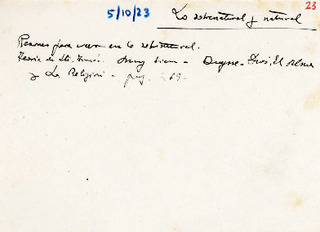 5/10/23
Lo sobrenatural y natural
23
Razones para creer en lo sobrenatural.
Teoría de Sto. Tomás. muy bien -
y La Religión - pág. 69-